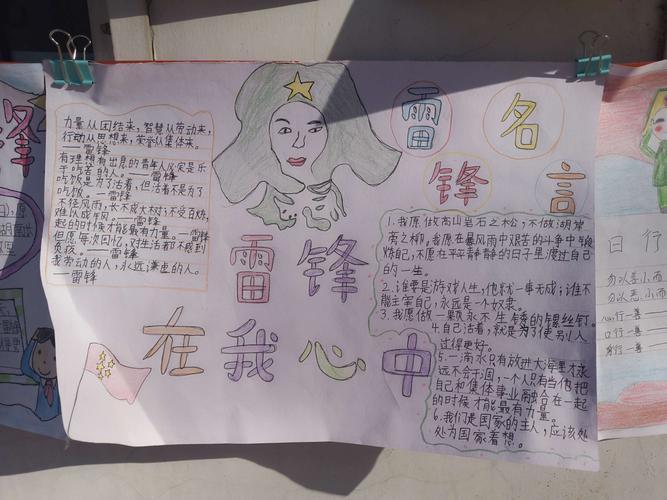 锋
力量从团结来，智慧从劳动来，
行动从思想来，荣誉从集体来。
——雷锋
有理想有出息的青年人必定是乐
于吃苦的人。——雷锋
吃饭是为了活着，但活着不是为了
吃饭。——雷锋
不经风雨，长不成大树；不受百炼，
难以成钢。——雷锋
起的时候才能最有力量。——雷锋
但愿每次回忆，对生活都不感到
负疚。——雷锋
我劳动的人，永远谦虚的人。
——雷锋
雷锋
在我心中
雷名
锋言
1.我愿做高山岩石之松，不做湖岸
旁之柳。我愿在暴风雨中艰苦的斗争中锻
炼自己，不愿在平平静静的日子里渡过自己
的一生。
2.谁要是游戏人生，他就一事无成；谁不
能主宰自己，永远是一个奴隶。
3.我愿做一颗永不生锈的螺丝钉。
4.自己活着，就是为了使别人
过得更好。
5.一滴水只有放进大海里才永
远不会干涸，一个人只有当他把
自己和集体事业融合在一起
的时候才能最有力量。
6.我们是国家的主人，应该处
处为国家着想。
日行
勿以善小而
勿以恶小而
心行一善
口行一善
身行一善